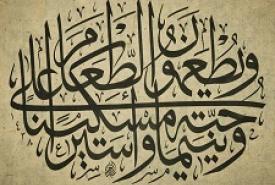 ويطعمون الطعام على
حبه مسكينا
ويتيما وأسيرا